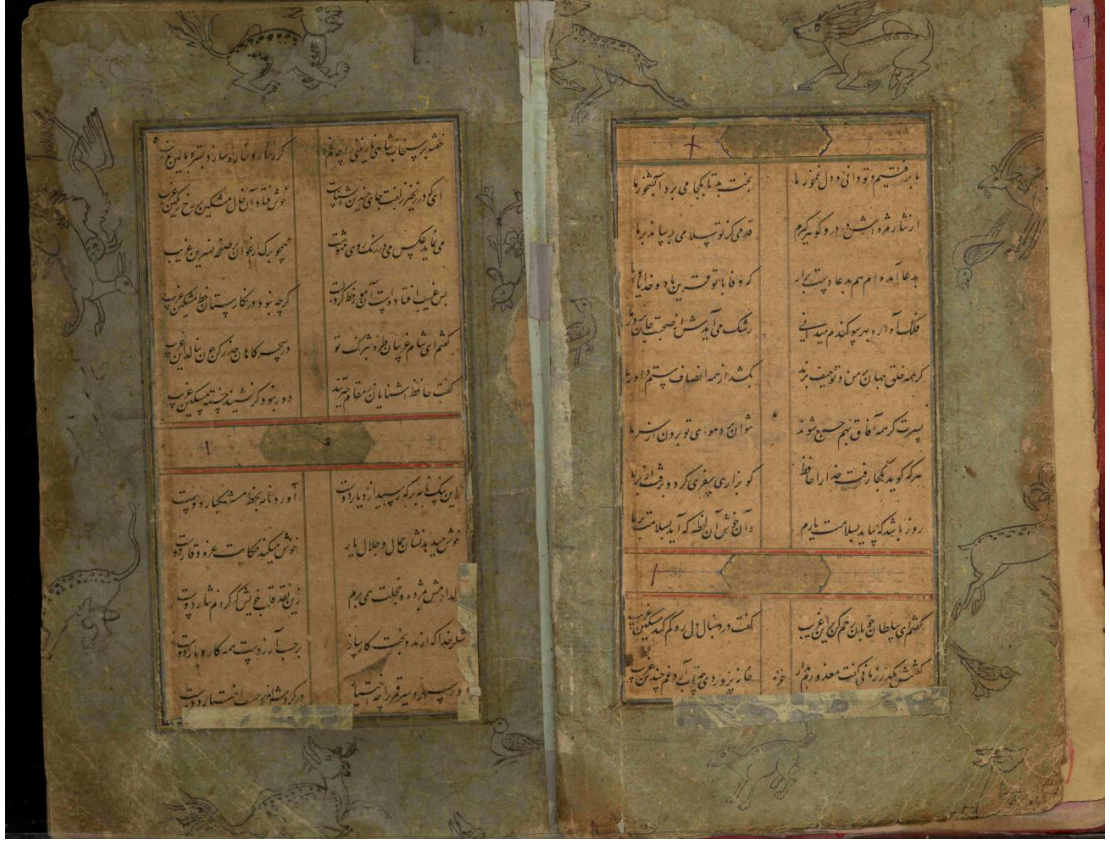 ما برفتیم و تو دانی و دل غمخور ما بخت بد تا بکجا می برد آبشخور ما
از نثار مژه اش در و کوهر گیرم قدمی کز تو سلامی برساند بر ما
بدعا آمده ام هم بدعا دست برار که وفا با تو قرین باد و خدا یاور ما
فلک آواره بهر سو کندم میدانی رشک می آیدش از صحبت جان پرور ما
کر همه خلق جهان بر من و تو حیف برند بکشد از همه انصاف ستم داور ما
بسرت کر همه آفاق بهم جمع شوند نتوان برد هوای تو برون از سر ما
هر که کوید که کجا رفت خدا را حافظ کو بزاری سفری کرد و برفت از بر ما
روز باشد که بیاید بسلامت یارم آن خوش آن لحظه که آید بسلامت بر ما
کفتم ای سلطان خوبان رحم کن بر این غریب کفت در دنبال دل ره کم کند مسکین غریب
کفتمش مکذر زمانی کفت معذورم بدار خانه پروردی چه تاب آرد غم چندین غریب
خفته بر سنجاب شاهی نازنینی را چه غم کر ز خار و خاره سازد بستر و بالین غریب
ای که در زنجیر زلفت جای چندین آشناست خوش فتاد آن خال مشکین بر رخ رنکین غریب
می نماید عکس می در رنک روی مهوشت همچو برک ارغوان بر صفحه نسرین غریب
بس غریب افتاده است آن مور خط کرد رخت کرچه نبود در نکارستان خط مشکین غریب
کفتم ای شام غریبان طره شبرنک تو در سحرکاهان حذر کن چون بنالد این غریب
کفت حافظ آشنایان در مقام حیرتند دور نبود کر نشیند خسته و مسکین غریب
این پیک نامور که رسید از دیار دوست آورد نامه بخط مشکبار دوست
خوش میدهد نشان جمال و جلال یار خوش میکند حکایت عز و وقار دوست
دل دادمش بمژده و خجلت همی برم زین نقد قلب خویش که کردم نثار دوست
شکر خدا که از مدد بخت کارساز بر حسب آرزوست همه کار و بار دوست
سیر سپهر و دور قمر را چه اختیار در کردشند بر حسب اختیار دوست